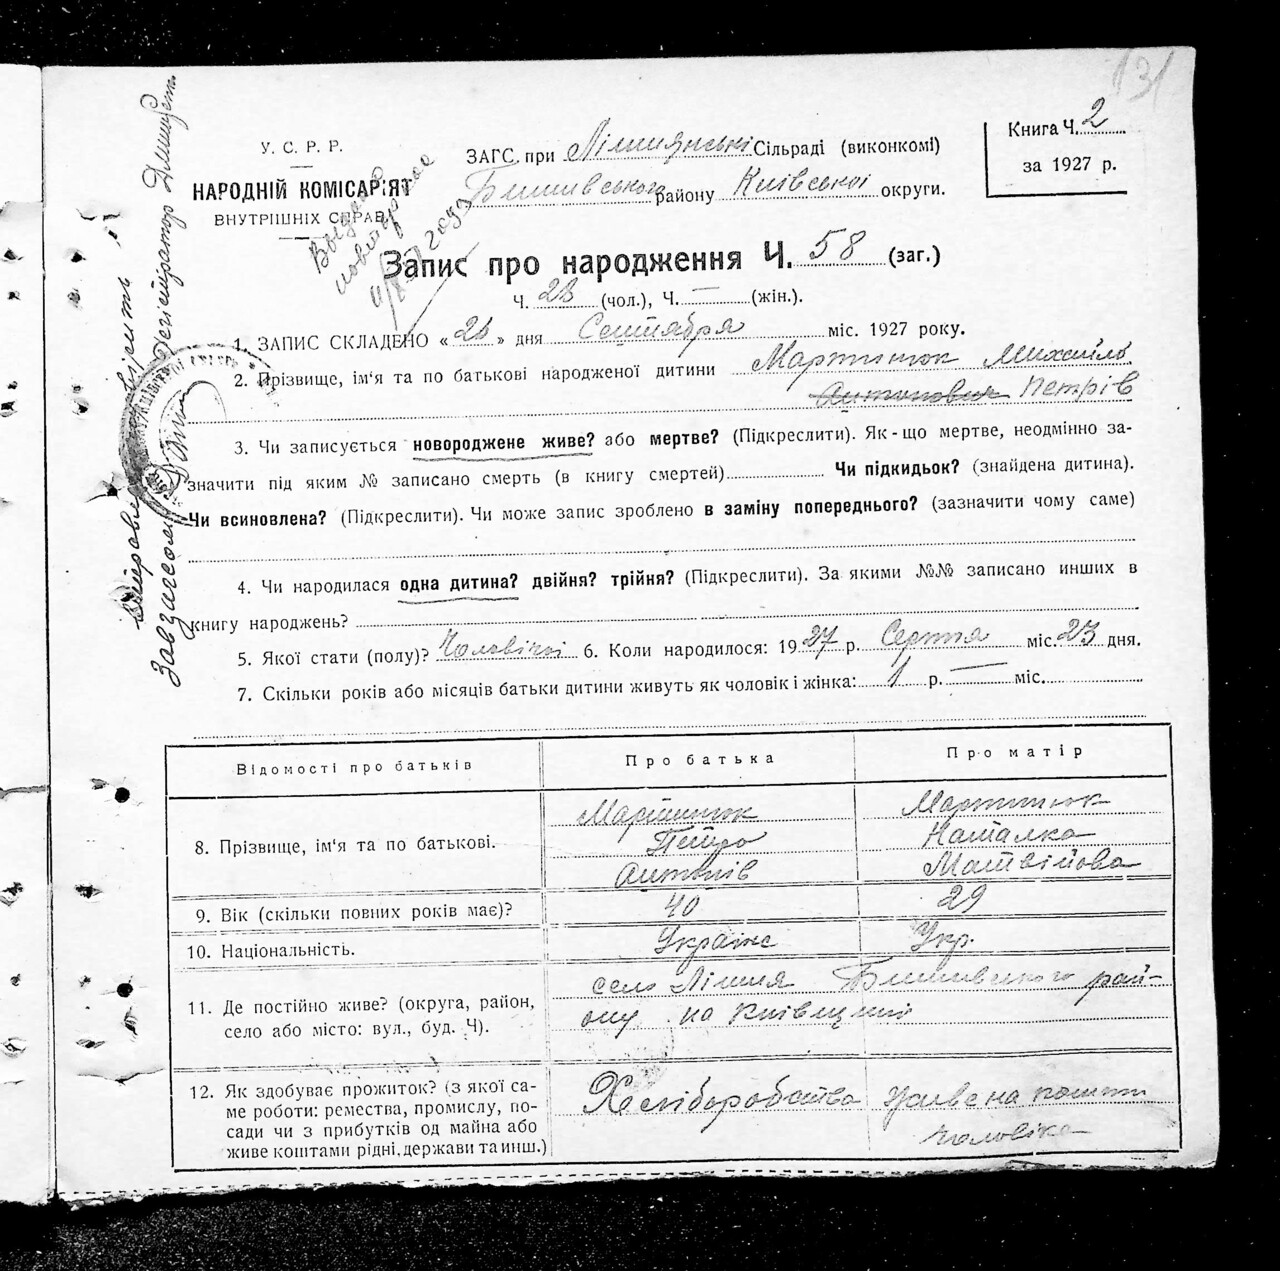 131
У. С. Р. Р.
НАРОДНІЙ КОМІСАР'ЯТ
ВНУТРІШНІХ СПРАВ
ЗАГС при Лишнянські Сільраді (виконкомі)
Бишивського району Київської округи.
Книга Ч. 2
за 1927 р.
Запис про народження Ч. 58 (заг.)
Ч. 28 (чол.), Ч. — (жін.).
1. ЗАПИС СКЛАДЕНО « 26 » дня Сентября міс. 1927 року.
2. Прізвище, ім'я та по батькові народженої дитини Мартинюк Михайло
Антонович Петрів
3. Чи записується новороджене живе? або мертве? (Підкреслити). Як-що мертве, неодмінно за-
значити під яким № записано смерть (в книгу смертей) Чи підкидьок? (знайдена дитина).
Чи всиновлена? (Підкреслити). Чи може запис зроблено в заміну попереднього? (зазначити чому саме)
4. Чи народилася одна дитина? двійня? трійня? (Підкреслити). За якими №№ записано инших в
книгу народжень?
5. Якої стати (полу)? Чоловічої 6. Коли народилося: 1927 р. Серпня міс. 23 дня.
7. Скільки років або місяців батьки дитини живуть як чоловік і жінка: 1 р. — міс.
Відомості про батьків Про батька Про матір
8. Прізвище, ім'я та по батькові. Мартинюк Мартинюк
Петро Наталка
Антонів Матвійова
9. Вік (скільки повних років має)? 40 29
10. Національність. Українс Укр.
11. Де постійно живе? (округа, район, село Лишня Бишивського рай-
село або місто: вул., буд. Ч). ону на Київщині
12. Як здобуває прожиток? (з якої са-
ме роботи: ремества, промислу, по-
сади чи з прибутків од майна або
живе коштами рідні, держави та инш.)
Хліборобства Живе на кошти
чоловіка
Завзагсом
Реєстратор